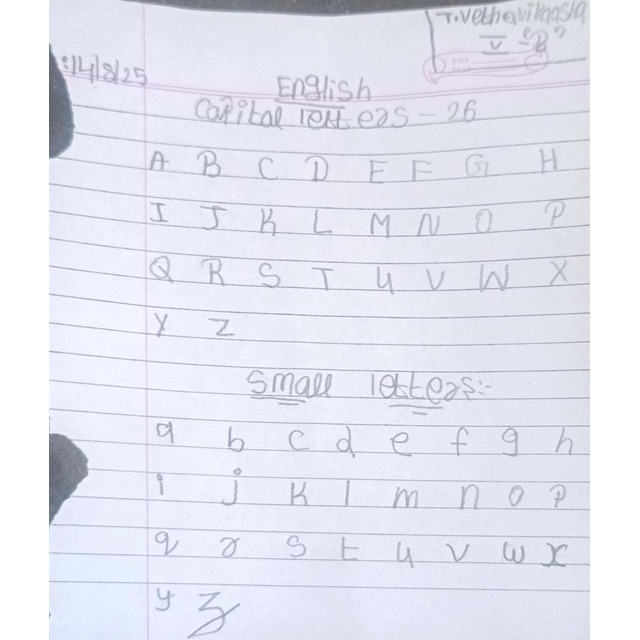 T.Vethavikassia
V - "B"
:14/8/25
English
Capital letters - 26
A B C D E F G H
I J K L M N O P
Q R S T U V W X
Y Z
Small letters:-
a b c d e f g h
i j k l m n o p
q r s t u v w x
y z